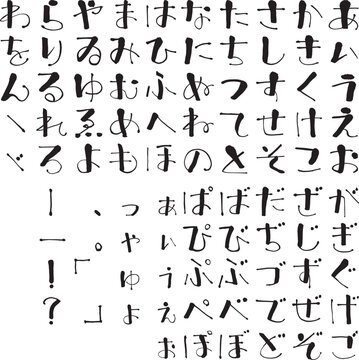 あいうえお
かきくけこ
さしすせそ
たちつてと
なにぬねの
はひふへほ
まみむめも
やゐゆゑよ
らりるれろ
わをんヽヾ
がぎぐげご
ざじずぜぞ
だぢづでど
ばびぶべぼ
ぱぴぷぺぽ
ぁぃぅぇぉ
っゃゅょ
、。「」
ー—！？